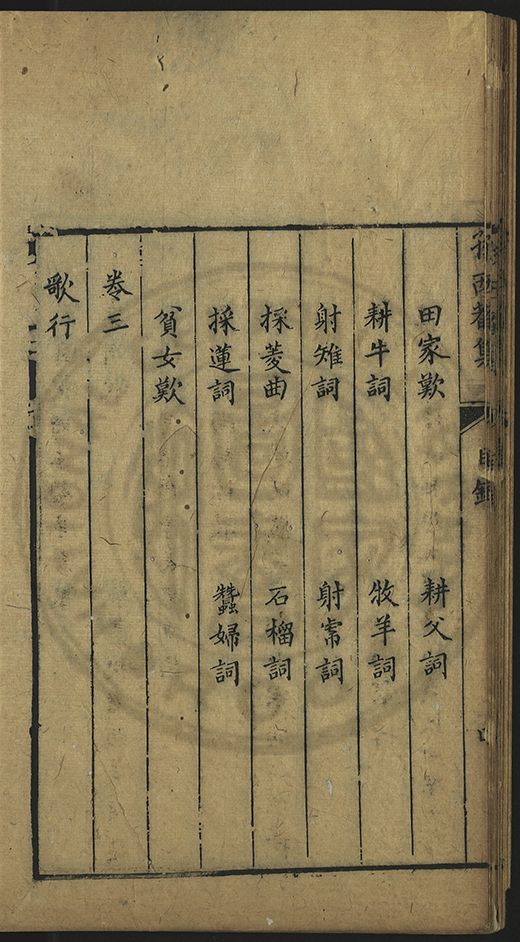 孫西菴集 目錄
田家歎 耕父詞
耕牛詞 牧羊詞
射雉詞 射乕詞
採菱曲 石榴詞
採蓮詞 蠶婦詞
貧女歎
卷三
歌行